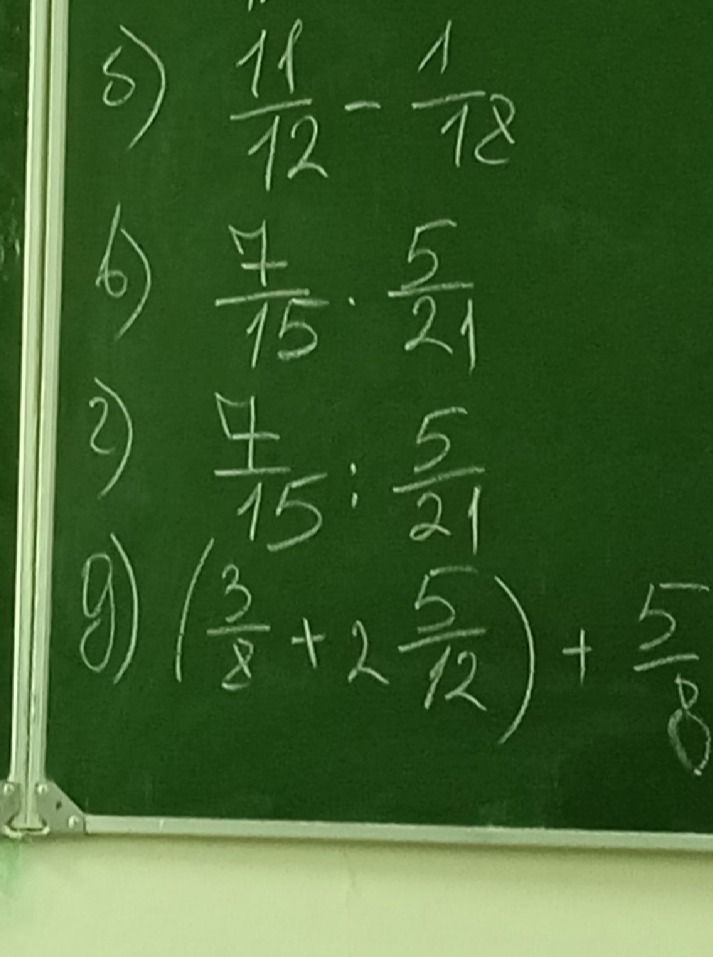 б) 11/12 - 1/18
в) 7/15 · 5/21
г) 7/15 : 5/21
д) (3/8 + 2 5/12) + 5/8